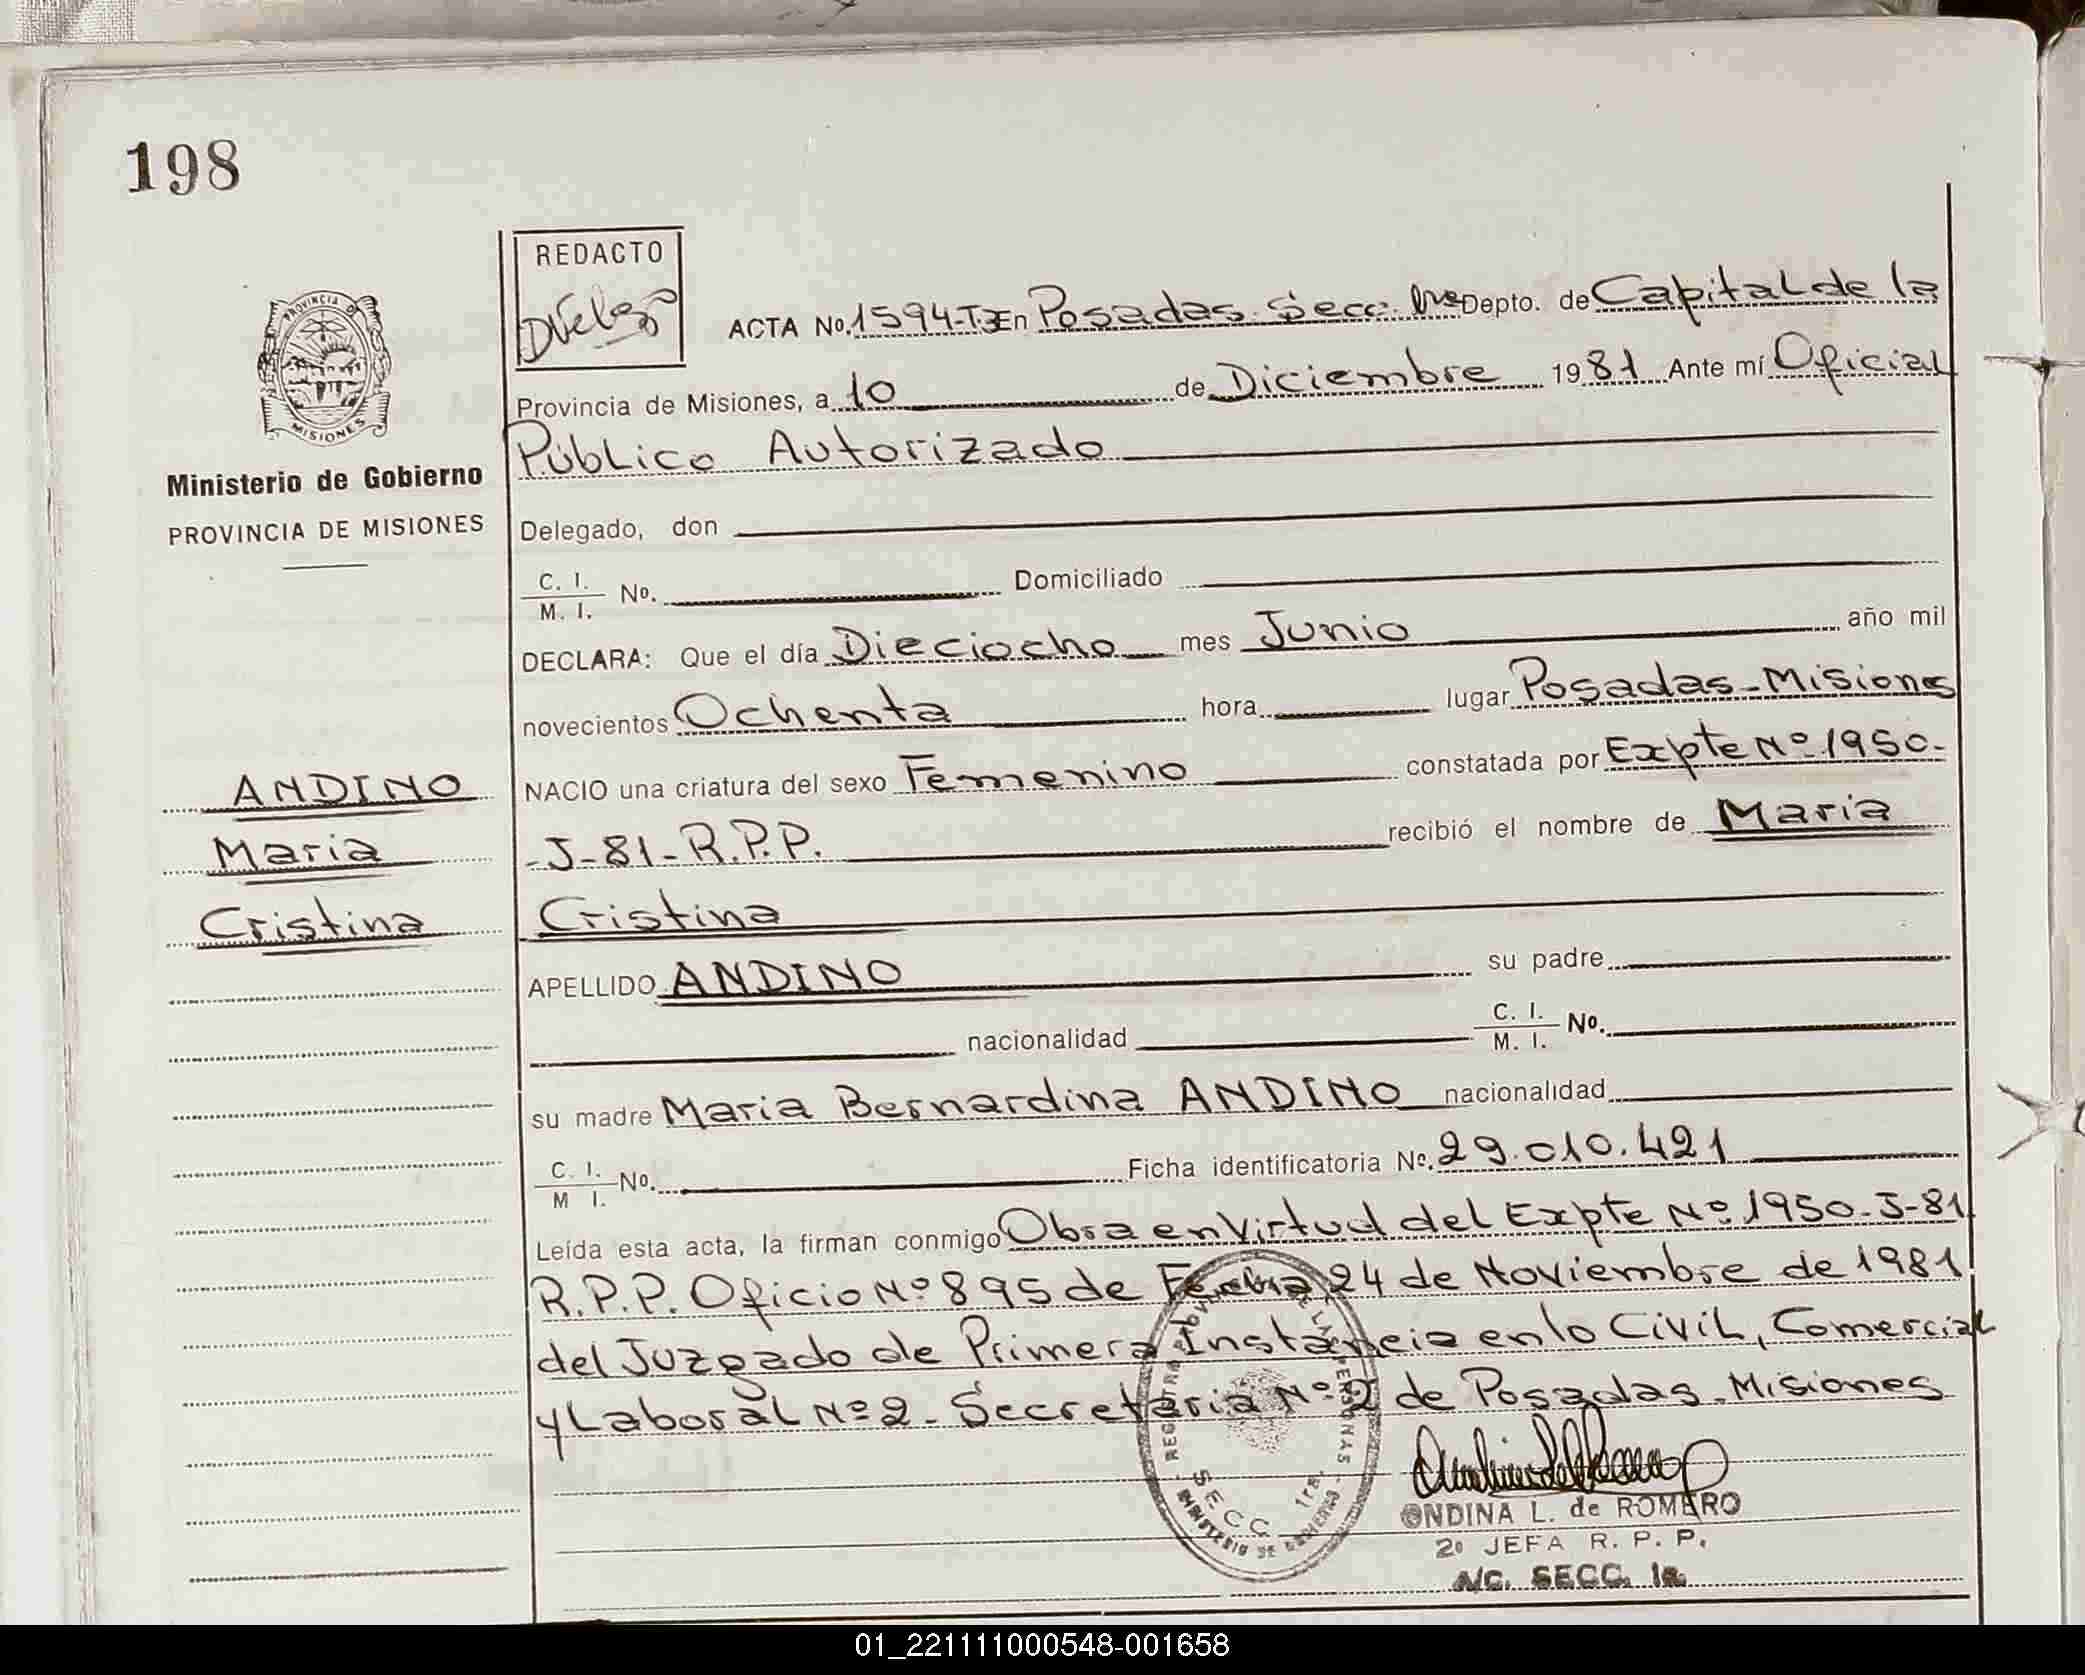 198
REDACTO
ACTA No. 1594-T3 En Posadas Secc. 1ra Depto. de Capital de la
PROVINCIA DE
MISIONES
Provincia de Misiones, a 10 de Diciembre 1981 Ante mí Oficial
Público Autorizado
Ministerio de Gobierno
PROVINCIA DE MISIONES
Delegado, don
C. I.
M. I. No. Domiciliado
DECLARA: Que el día Dieciocho mes Junio año mil
novecientos Ochenta hora lugar Posadas-Misiones
NACIO una criatura del sexo Femenino constatada por Expte Nº 1950-
-J-81-R.P.P. recibió el nombre de Maria
Cristina
ANDINO
Maria
Cristina
APELLIDO ANDINO su padre
nacionalidad C. I.
M. I. No.
su madre Maria Bernardina ANDINO nacionalidad
C. I.
M I. No. Ficha identificatoria No. 29.010.421
Leída esta acta, la firman conmigo Obra en Virtud del Expte Nº 1950-J-81
R.P.P. Oficio Nº 895 de Fecha 24 de Noviembre de 1981
del Juzgado de Primera Instancia en lo Civil, Comercial
y Laboral Nº 2 - Secretaria Nº 2 de Posadas-Misiones
SECC. 1ra.
MINISTERIO DE GOBIERNO
ONDINA L. de ROMERO
2º JEFA R. P. P.
A/C. SECC. 1a.
01_221111000548-001658